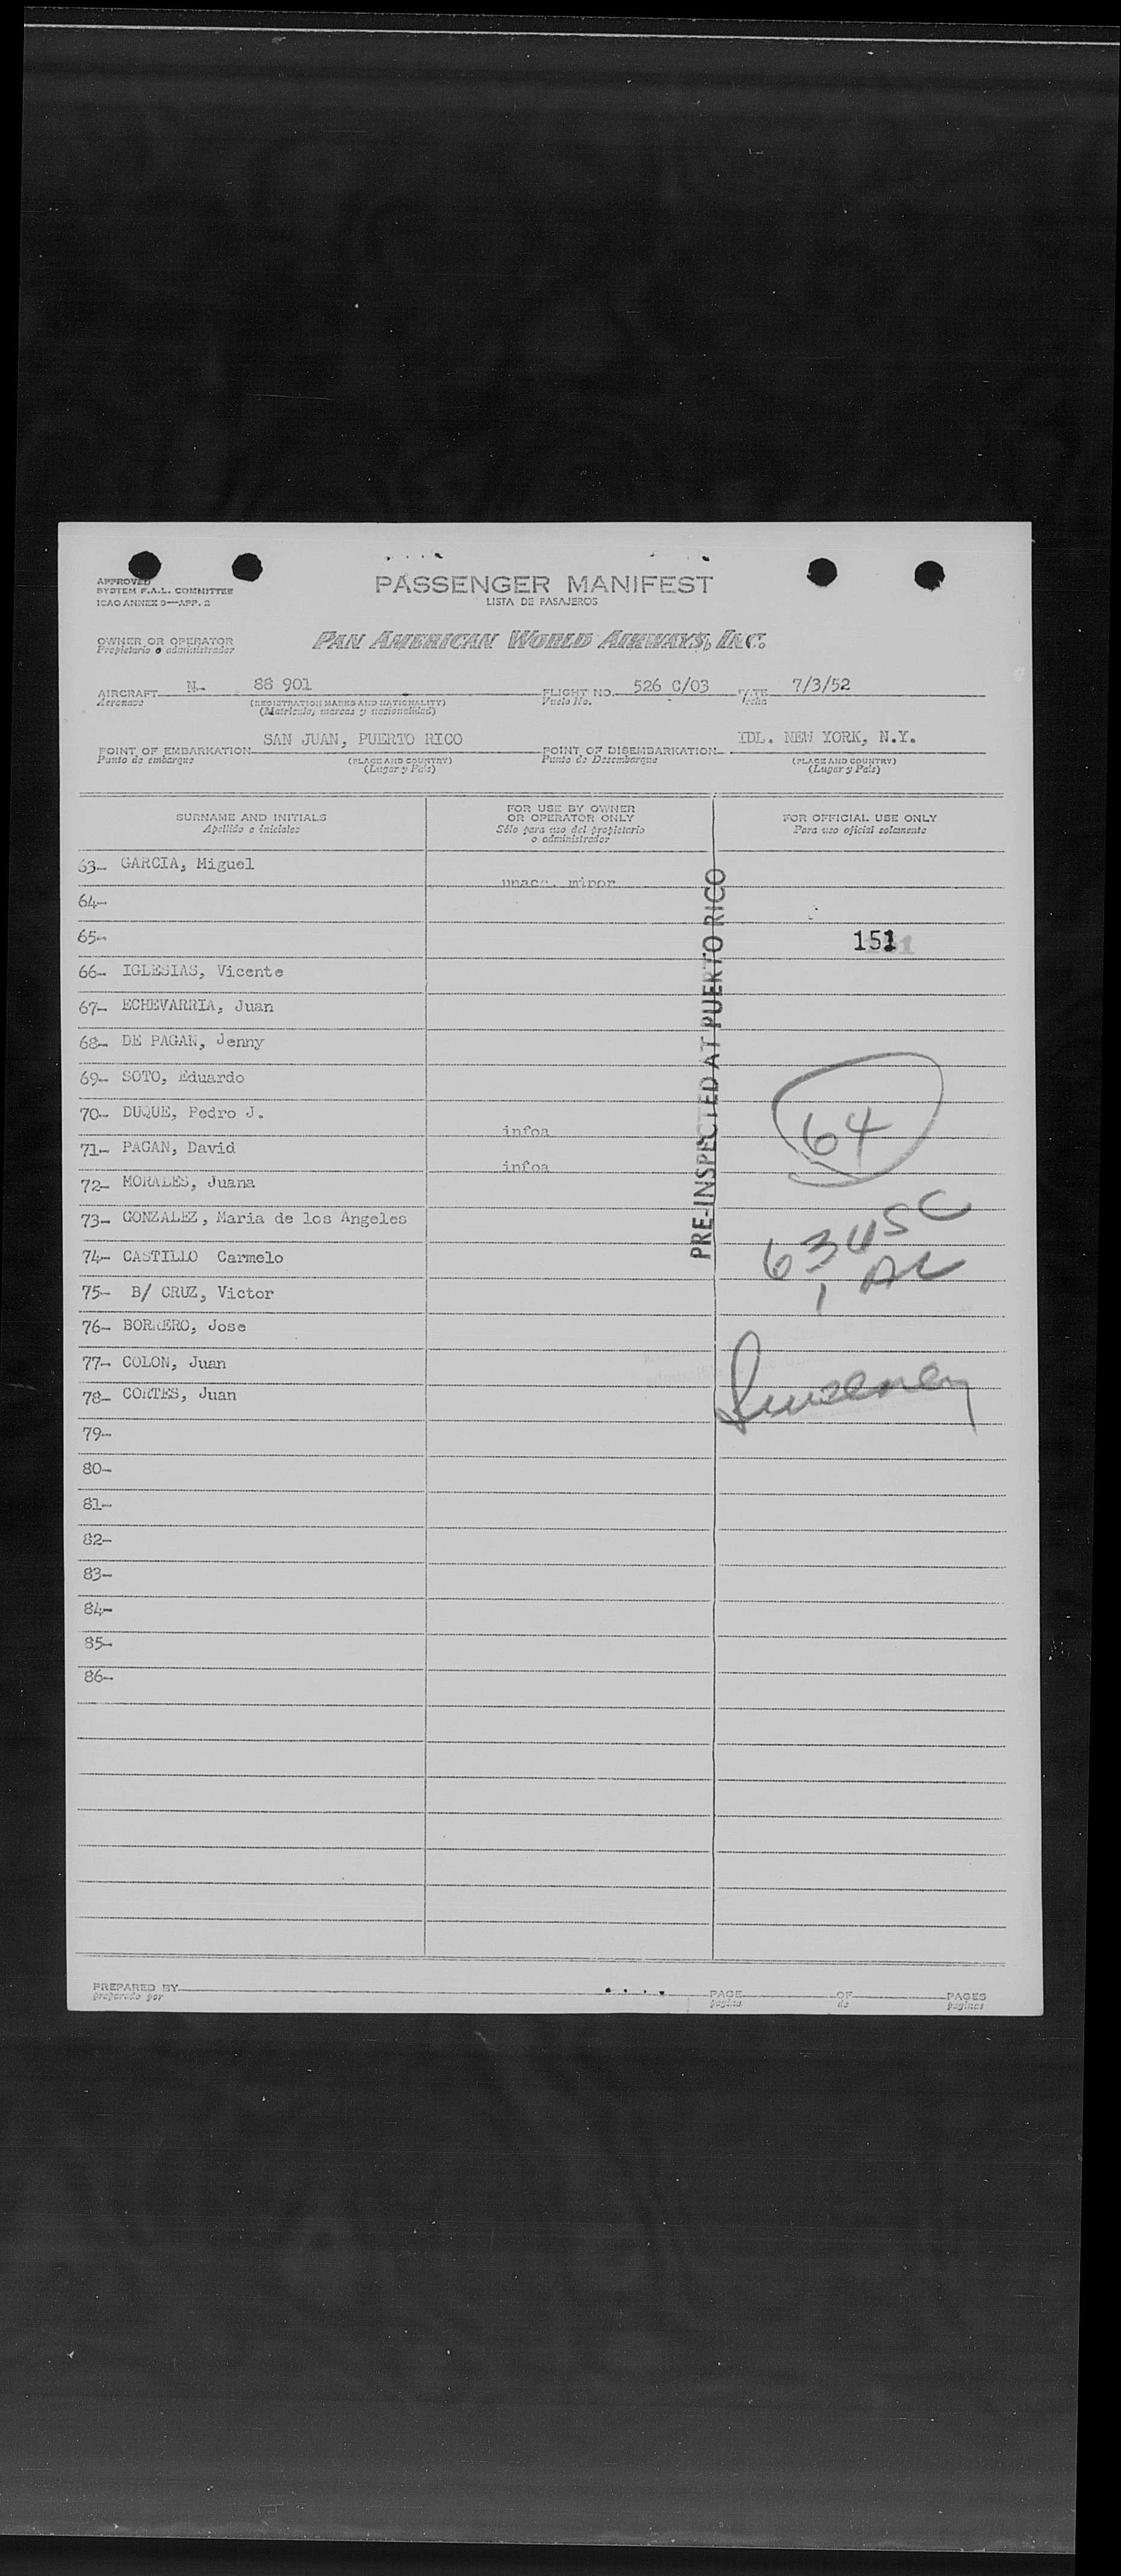 APPROVED
SYSTEM F.A.L. COMMITTEE
ICAO ANNEX 9—APP. 2
PASSENGER MANIFEST
LISTA DE PASAJEROS
OWNER OR OPERATOR
Propietario o administrador
PAN AMERICAN WORLD AIRWAYS, INC.
AIRCRAFT N- 88 901 FLIGHT NO. 526 C/03 DATE 7/3/52
Aeronave (REGISTRATION MARKS AND NATIONALITY) Vuelo No. Fecha
(Matricula, marcas y nacionalidad)
POINT OF EMBARKATION SAN JUAN, PUERTO RICO POINT OF DISEMBARKATION IDL. NEW YORK, N.Y.
Punto de embarque (PLACE AND COUNTRY) Punto de Desembarque (PLACE AND COUNTRY)
(Lugar y País) (Lugar y País)
SURNAME AND INITIALS FOR USE BY OWNER OR OPERATOR ONLY FOR OFFICIAL USE ONLY
Apellido e iniciales Sólo para uso del propietario o administrador Para uso oficial solamente
63- GARCIA, Miguel unacc. minor
64-
65- 151
66- IGLESIAS, Vicente
67- ECHEVARRIA, Juan
68- DE PAGAN, Jenny
69- SOTO, Eduardo
70- DUQUE, Pedro J. infoa
71- PAGAN, David infoa
72- MORALES, Juana
73- GONZALEZ, Maria de los Angeles
74- CASTILLO Carmelo
75- B/ CRUZ, Victor
76- BORRERO, Jose
77- COLON, Juan
78- CORTES, Juan
79-
80-
81-
82-
83-
84-
85-
86-
PRE-INSPECTED AT PUERTO RICO
64
63 USC
1 AL
Sweeney
PREPARED BY PAGE OF PAGES
preparado por pagina de paginas